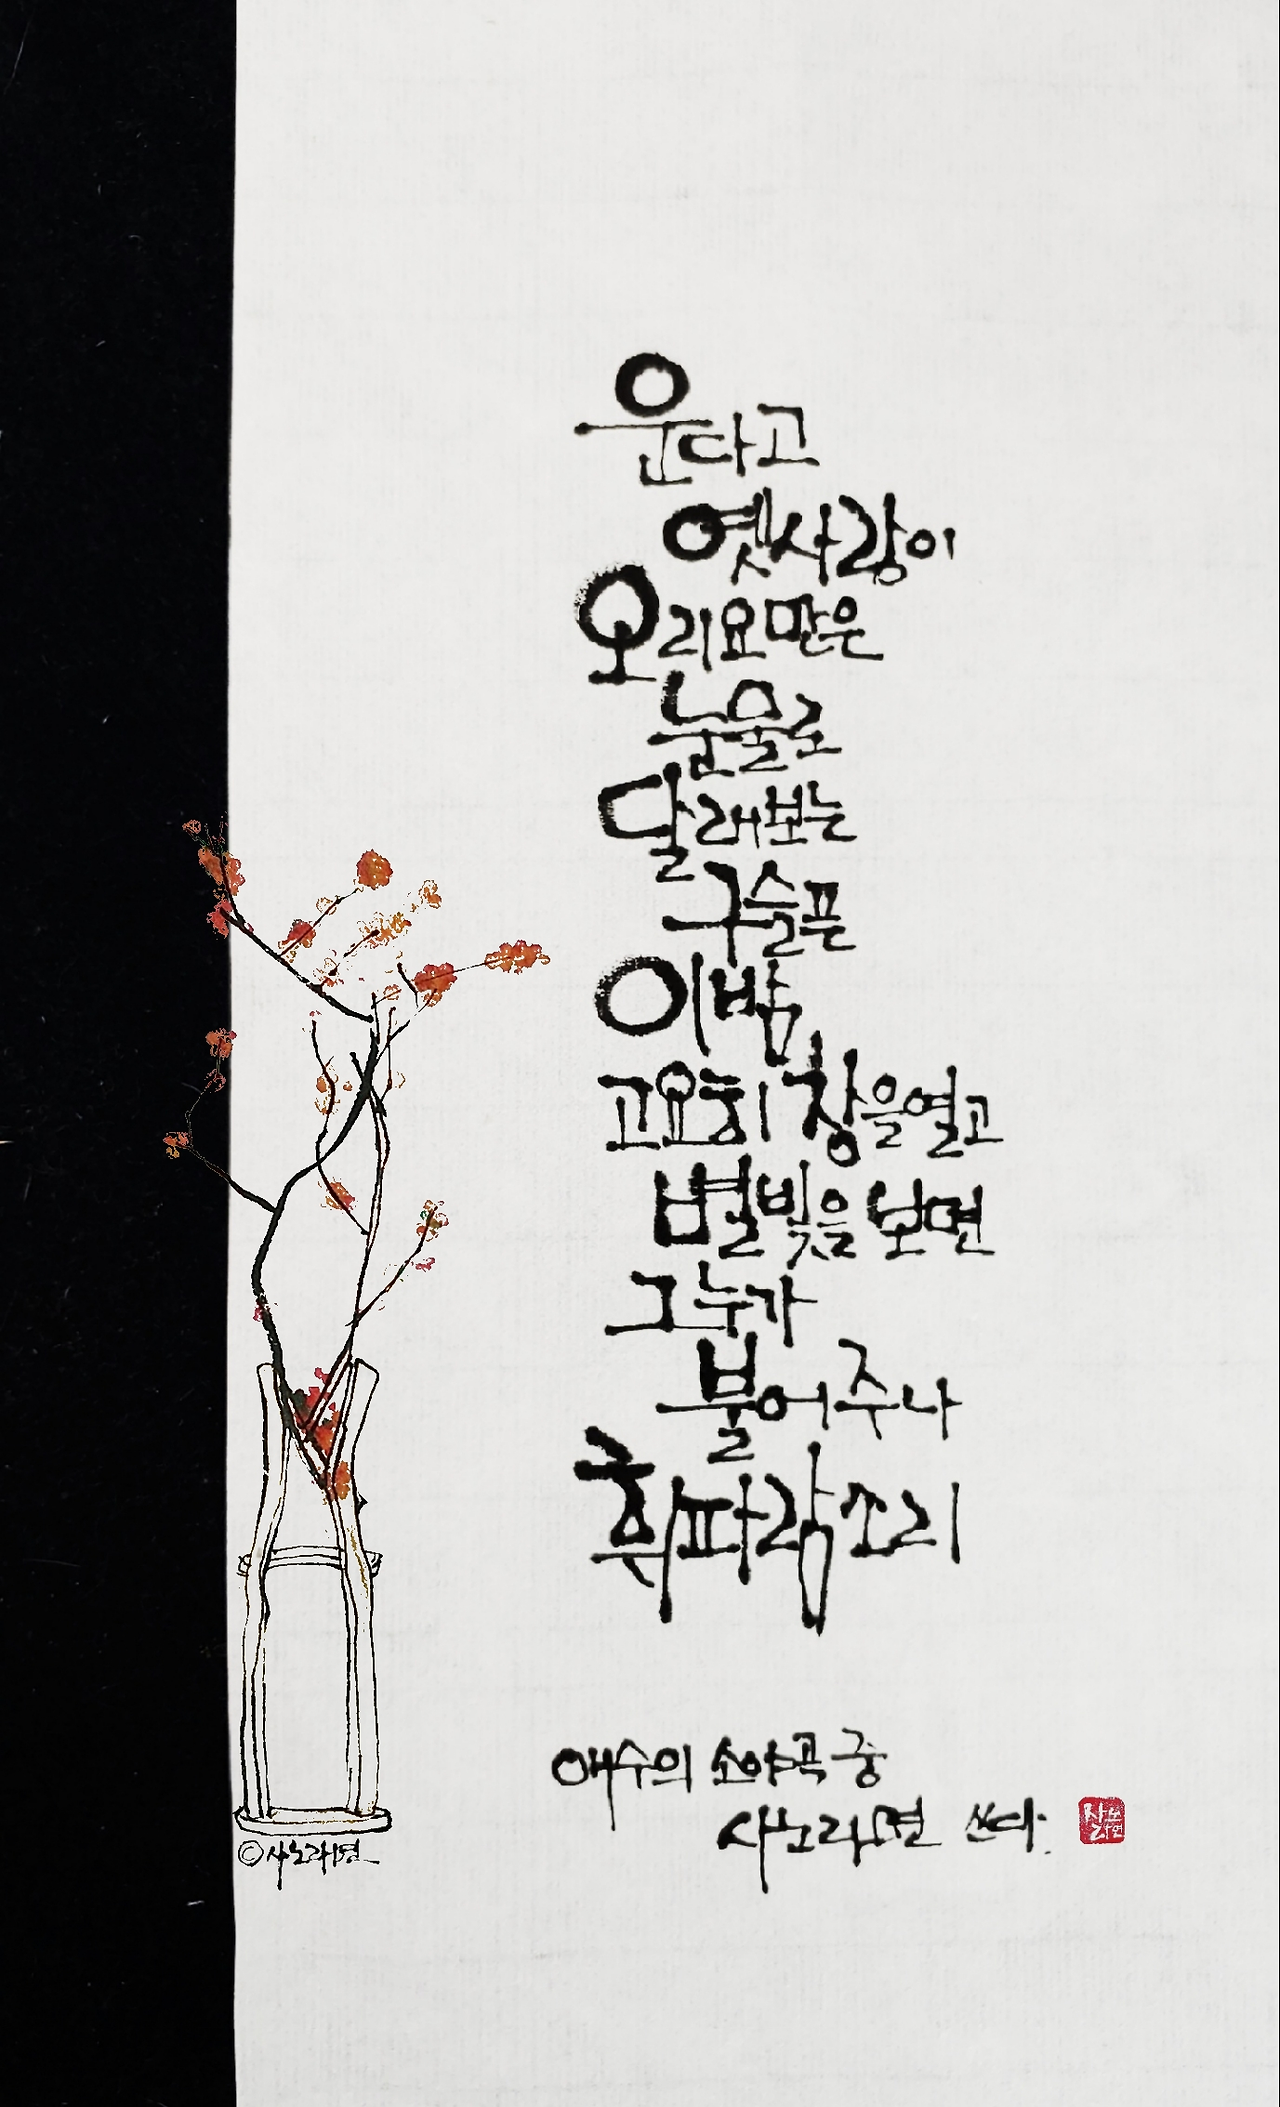 운다고
옛사랑이
오리요만은
눈물로
달래보는
구슬픈
이밤
고요히 창을열고
별빛을 보면
그누가
불어주나
휘파람소리
애수의 소야곡 중
사노라면 쓰다.
사노라면
©사노라면